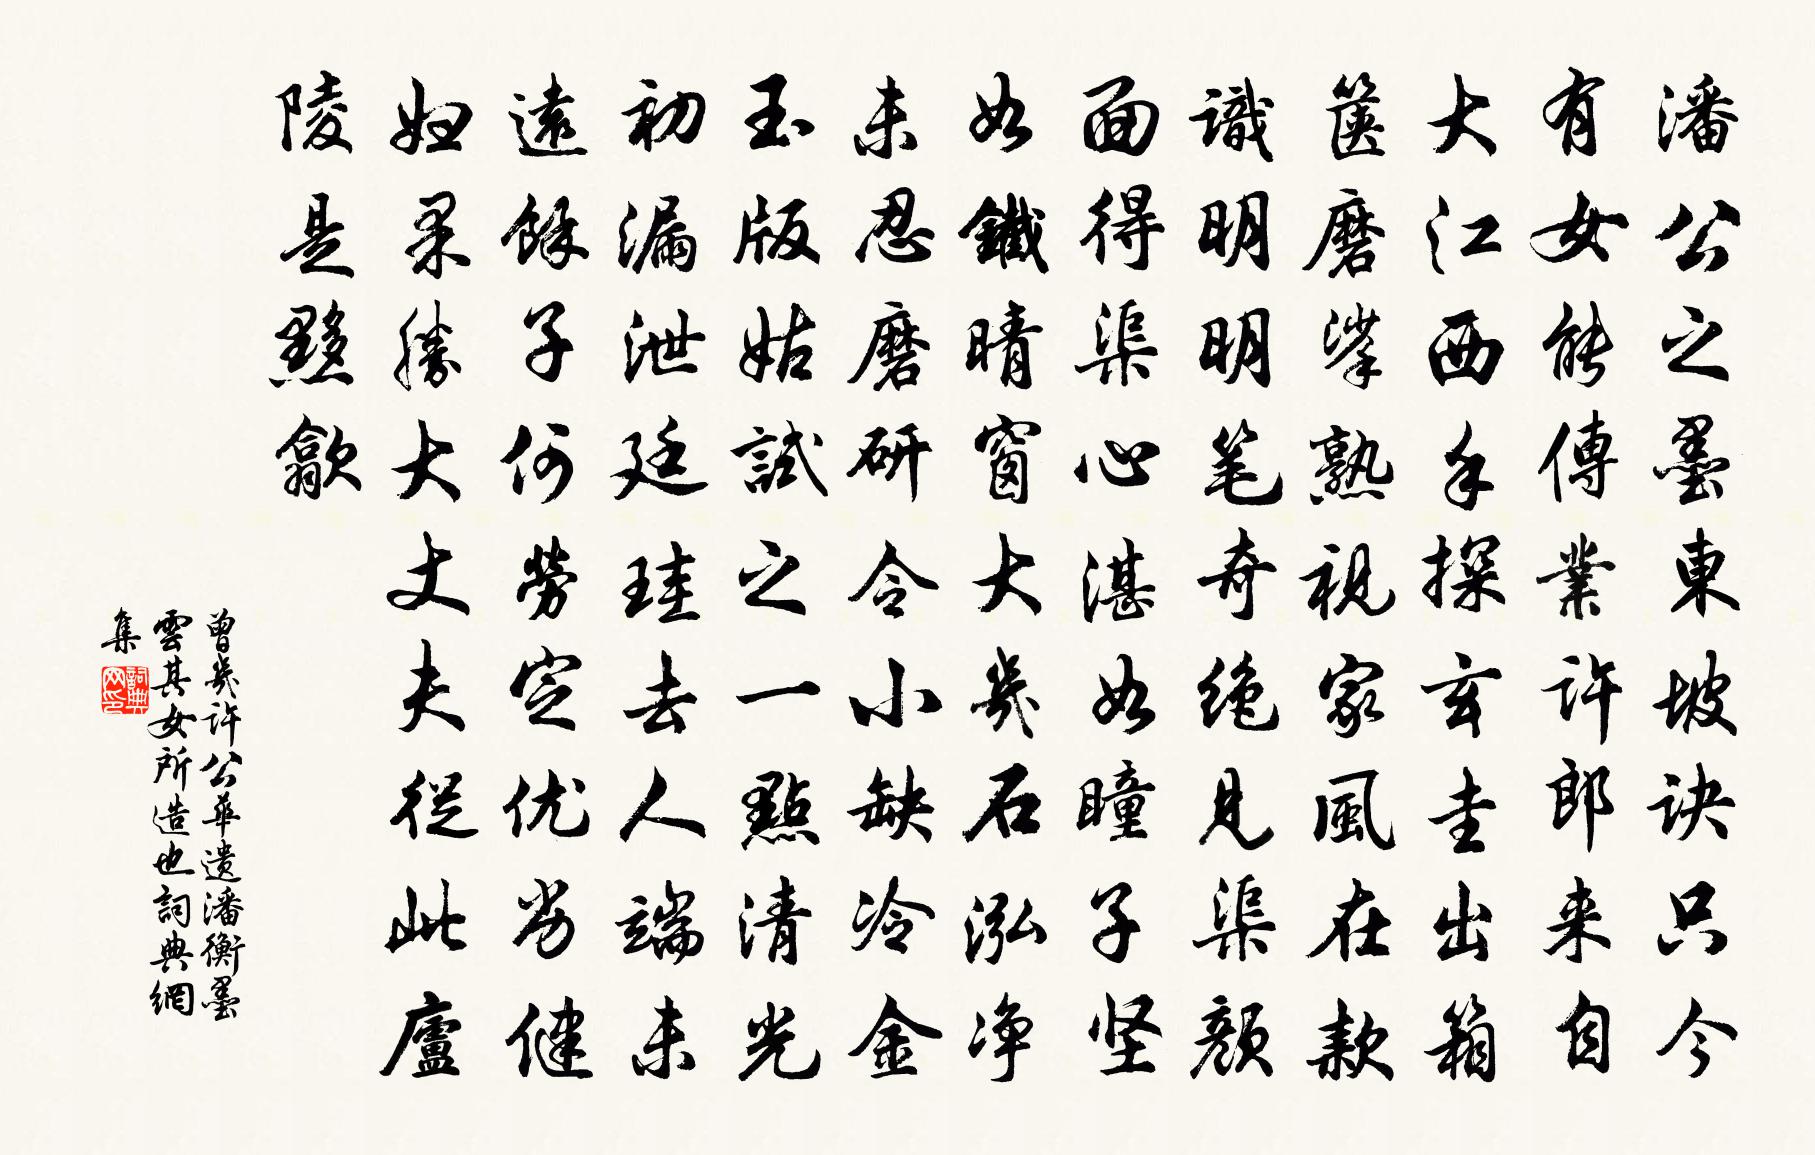 潘公之墨東坡訣只今
有女能傳業許郎来自
大江西手探玄圭出箱
篋磨挲熟視家風在款
識明明笔奇绝見渠顏
面得渠心湛如瞳子坚
如鐵晴窗大幾石泓净
未忍磨研令小缺冷金
玉版姑試之一點清光
初漏泄廷珪去人端未
遠餘子何勞定优劣健
婦果勝大丈夫從此廬
陵是黟歙
曾幾许公华遗潘衡墨
雲其女所造也詞典網
集
詞典网印